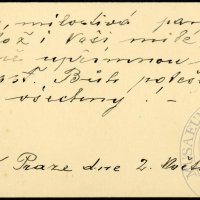 , milostivá pan
lož i Vaší milé
ne upřímnou
Bůh potěš
všechny! –
V Praze dne 2. květ